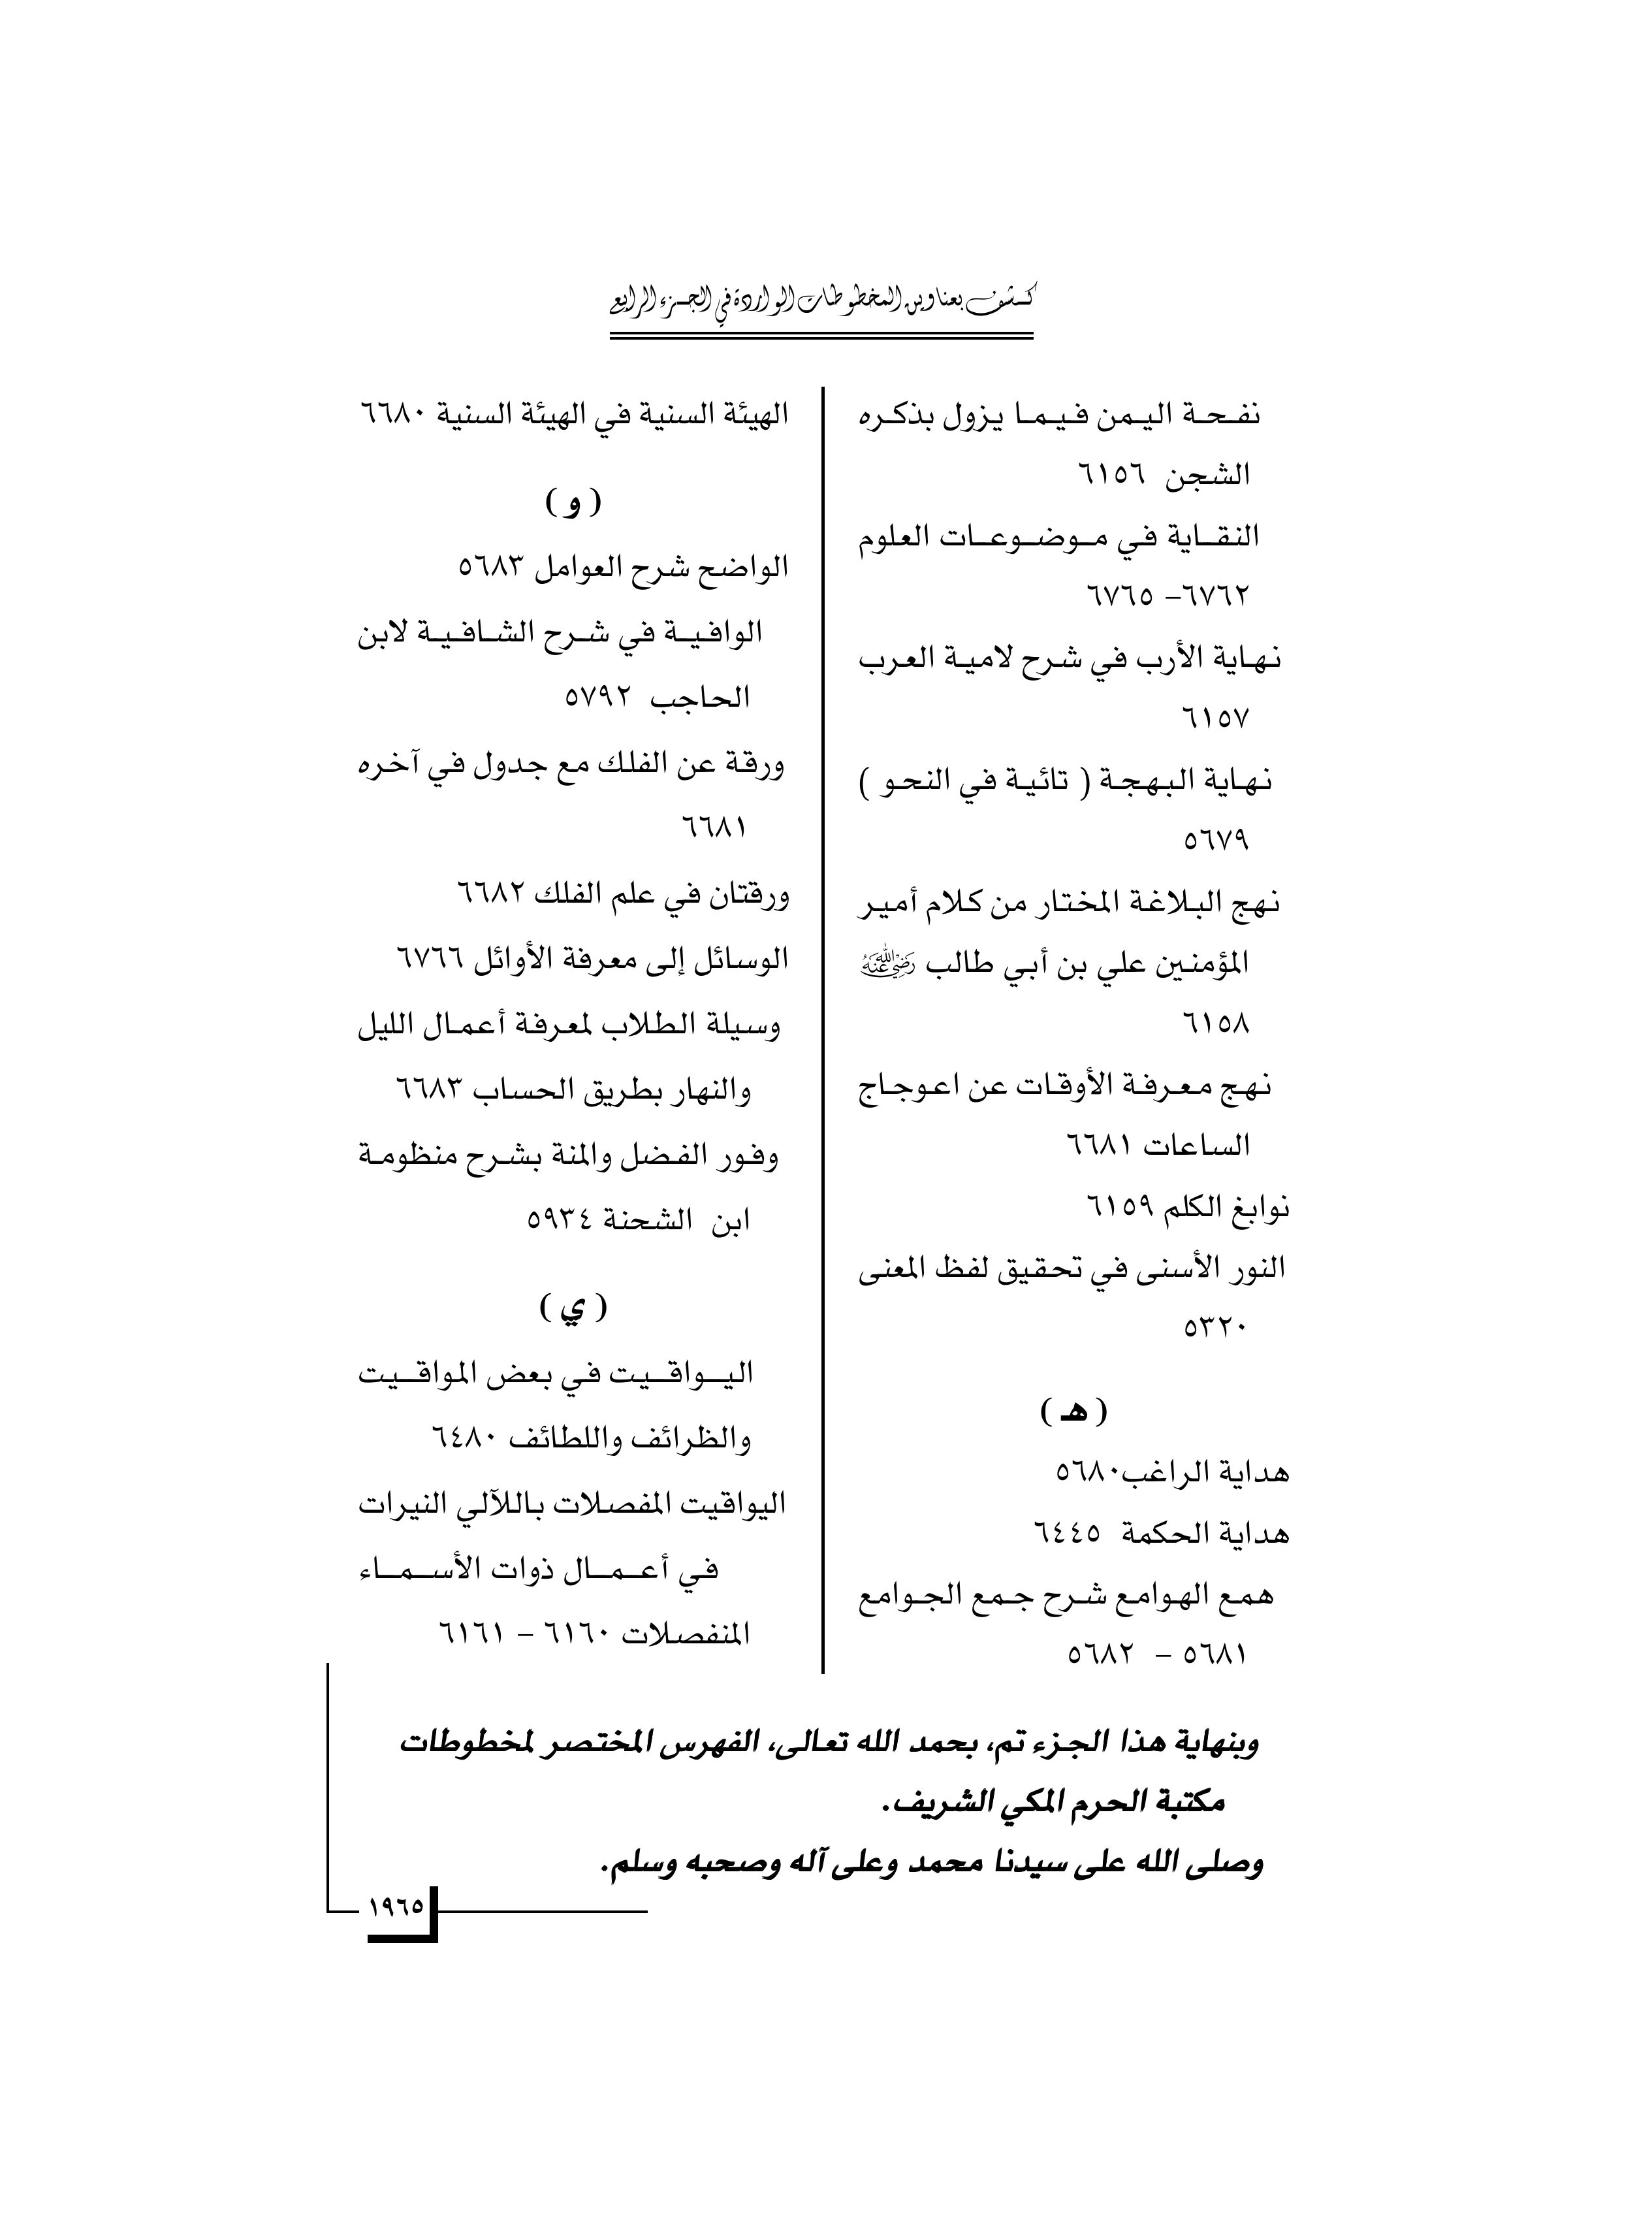 كشف بعناوين المخطوطات الواردة في الجزء الرابع
نفحة اليمن فيما يزول بذكره
الشجن ٦١٥٦
النقاية في موضوعات العلوم
٦٧٦٢– ٦٧٦٥
نهاية الأرب في شرح لامية العرب
٦١٥٧
نهاية البهجة ( تائية في النحو )
٥٦٧٩
نهج البلاغة المختار من كلام أمير
المؤمنين علي بن أبي طالب رَضِيَ اللهُ عَنْهُ
٦١٥٨
نهج معرفة الأوقات عن اعوجاج
الساعات ٦٦٨١
نوابغ الكلم ٦١٥٩
النور الأسنى في تحقيق لفظ المعنى
٥٣٢٠
( هـ )
هداية الراغب٥٦٨٠
هداية الحكمة ٦٤٤٥
همع الهوامع شرح جمع الجوامع
٥٦٨١ – ٥٦٨٢
الهيئة السنية في الهيئة السنية ٦٦٨٠
( و )
الواضح شرح العوامل ٥٦٨٣
الوافية في شرح الشافية لابن
الحاجب ٥٧٩٢
ورقة عن الفلك مع جدول في آخره
٦٦٨١
ورقتان في علم الفلك ٦٦٨٢
الوسائل إلى معرفة الأوائل ٦٧٦٦
وسيلة الطلاب لمعرفة أعمال الليل
والنهار بطريق الحساب ٦٦٨٣
وفور الفضل والمنة بشرح منظومة
ابن الشحنة ٥٩٣٤
( ي )
اليواقيت في بعض المواقيت
والظرائف واللطائف ٦٤٨٠
اليواقيت المفصلات باللآلي النيرات
في أعمال ذوات الأسماء
المنفصلات ٦١٦٠ – ٦١٦١
وبنهاية هذا الجزء تم، بحمد الله تعالى، الفهرس المختصر لمخطوطات
مكتبة الحرم المكي الشريف.
وصلى الله على سيدنا محمد وعلى آله وصحبه وسلم.
١٩٦٥